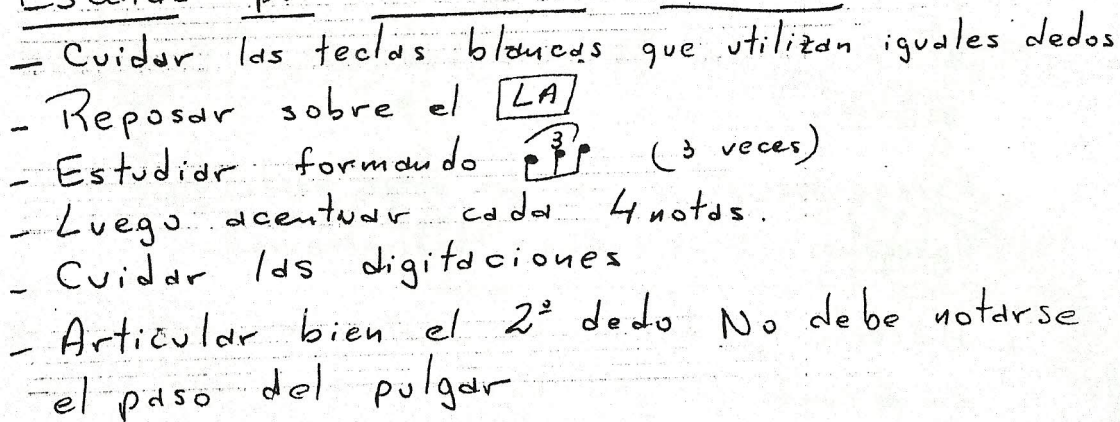 - Cuidar las teclas blancas que utilizan iguales dedos
- Reposar sobre el LA
- Estudiar formando 3 (3 veces)
- Luego acentuar cada 4 notas.
- Cuidar las digitaciones
- Articular bien el 2º dedo No debe notarse
el paso del pulgar